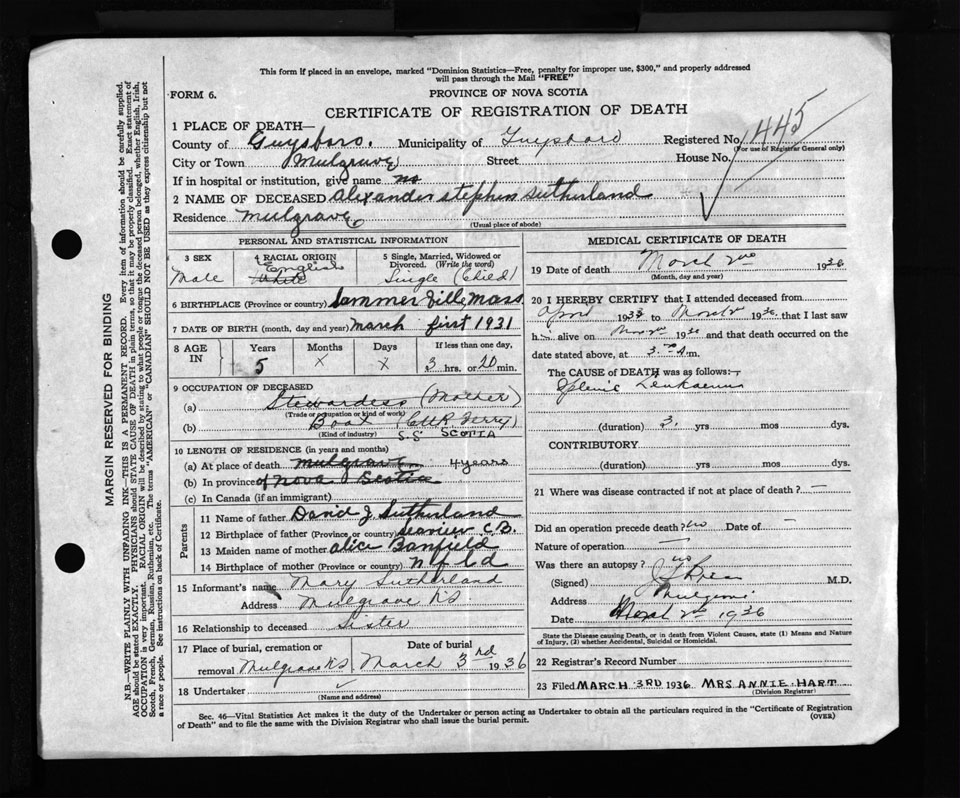 This form if placed in an envelope, marked "Dominion Statistics—Free, penalty for improper use, $300," and properly addressed
will pass through the Mail "FREE"
FORM 6.
PROVINCE OF NOVA SCOTIA
CERTIFICATE OF REGISTRATION OF DEATH
1 PLACE OF DEATH—
County of Guysboro. Municipality of Guysboro Registered No. 1445
(For use of Registrar General only)
City or Town Mulgrave Street House No.
If in hospital or institution, give name no
2 NAME OF DECEASED Alexander Stephen Sutherland
Residence Mulgrave
(Usual place of abode)
PERSONAL AND STATISTICAL INFORMATION
3 SEX
Male
4 RACIAL ORIGIN
English
White
5 Single, Married, Widowed or
Divorced. (Write the word)
Single (Child)
6 BIRTHPLACE (Province or country) Mass
7 DATE OF BIRTH (month, day and year) March first 1931
8 AGE IN
Years Months Days If less than one day,
5 X X 3 hrs. or 20 min.
9 OCCUPATION OF DECEASED
(a) Stewardess (Mother)
(Trade or occupation or kind of work)
(b) Boat (CNR Ferry)
(Kind of industry) S.S. SCOTIA
10 LENGTH OF RESIDENCE (in years and months)
(a) At place of death Mulgrave 4 years
(b) In province of Nova Scotia
(c) In Canada (if an immigrant)
Parents
11 Name of father David J Sutherland
12 Birthplace of father (Province or country) C.B.
13 Maiden name of mother Alice Banfield
14 Birthplace of mother Nfld
15 Informant's name Mary Sutherland
Address Mulgrave NS
16 Relationship to deceased Sister
17 Place of burial, cremation or Date of burial
removal Mulgrave NS. March 3rd 1936
18 Undertaker
(Name and address)
MEDICAL CERTIFICATE OF DEATH
19 Date of death March 2nd 1936
(Month, day and year)
20 I HEREBY CERTIFY that I attended deceased from
April 1933 to March 2 1936 that I last saw
h alive on 1936 and that death occurred on the
date stated above, at 3 m.
The CAUSE of DEATH was as follows:—
Splenic Leukaemia
(duration) 3. yrs mos dys.
CONTRIBUTORY
(duration) yrs. mos. dys.
21 Where was disease contracted if not at place of death? —
Did an operation precede death? no Date of —
Nature of operation —
Was there an autopsy? no
(Signed) M.D.
Address Mulgrave
Date March 2nd 1936
State the Disease causing Death, or in death from Violent Causes, state (1) Means and Nature
of Injury, (2) whether Accidental, Suicidal or Homicidal.
22 Registrar's Record Number
23 Filed MARCH 3RD 1936 MRS ANNIE HART
(Division Registrar)
Sec. 46—Vital Statistics Act makes it the duty of the Undertaker or person acting as Undertaker to obtain all the particulars required in the "Certificate of Registration
of Death" and to file the same with the Division Registrar who shall issue the burial permit.
(OVER)
MARGIN RESERVED FOR BINDING
N.B.—WRITE PLAINLY WITH UNFADING INK—THIS IS A PERMANENT RECORD. Every item of information should be carefully supplied.
AGE should be stated EXACTLY. PHYSICIANS should STATE CAUSE OF DEATH in plain terms, so that it may be properly classified. Exact statement of
OCCUPATION is very important. RACIAL ORIGIN will be described by stating to what people or tongue the deceased person belonged, whether English, Irish,
Scotch, French, German, Russian, Ruthenian, etc. The terms "AMERICAN" or "CANADIAN" SHOULD NOT BE USED as they express citizenship but not
a race or people. See instructions on back of Certificate.